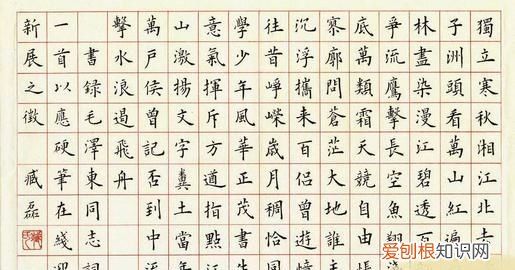 獨立寒秋湘江北去
子洲頭看萬山紅遍
林盡染漫江碧透百
爭流鷹擊長空魚翔
底萬類霜天競自由
寥廓問蒼茫大地誰
沉浮攜來百侶曾遊
往昔崢嶸歲月稠恰
學少年風華正茂書生
意氣揮斥方遒指點
山激揚文字糞土當年
萬戶侯曾記否到中
擊水浪遏飛舟
書録毛澤東同志詞
一首以應硬筆在綫迎
新展之徵
臧磊
爱刨根知识网